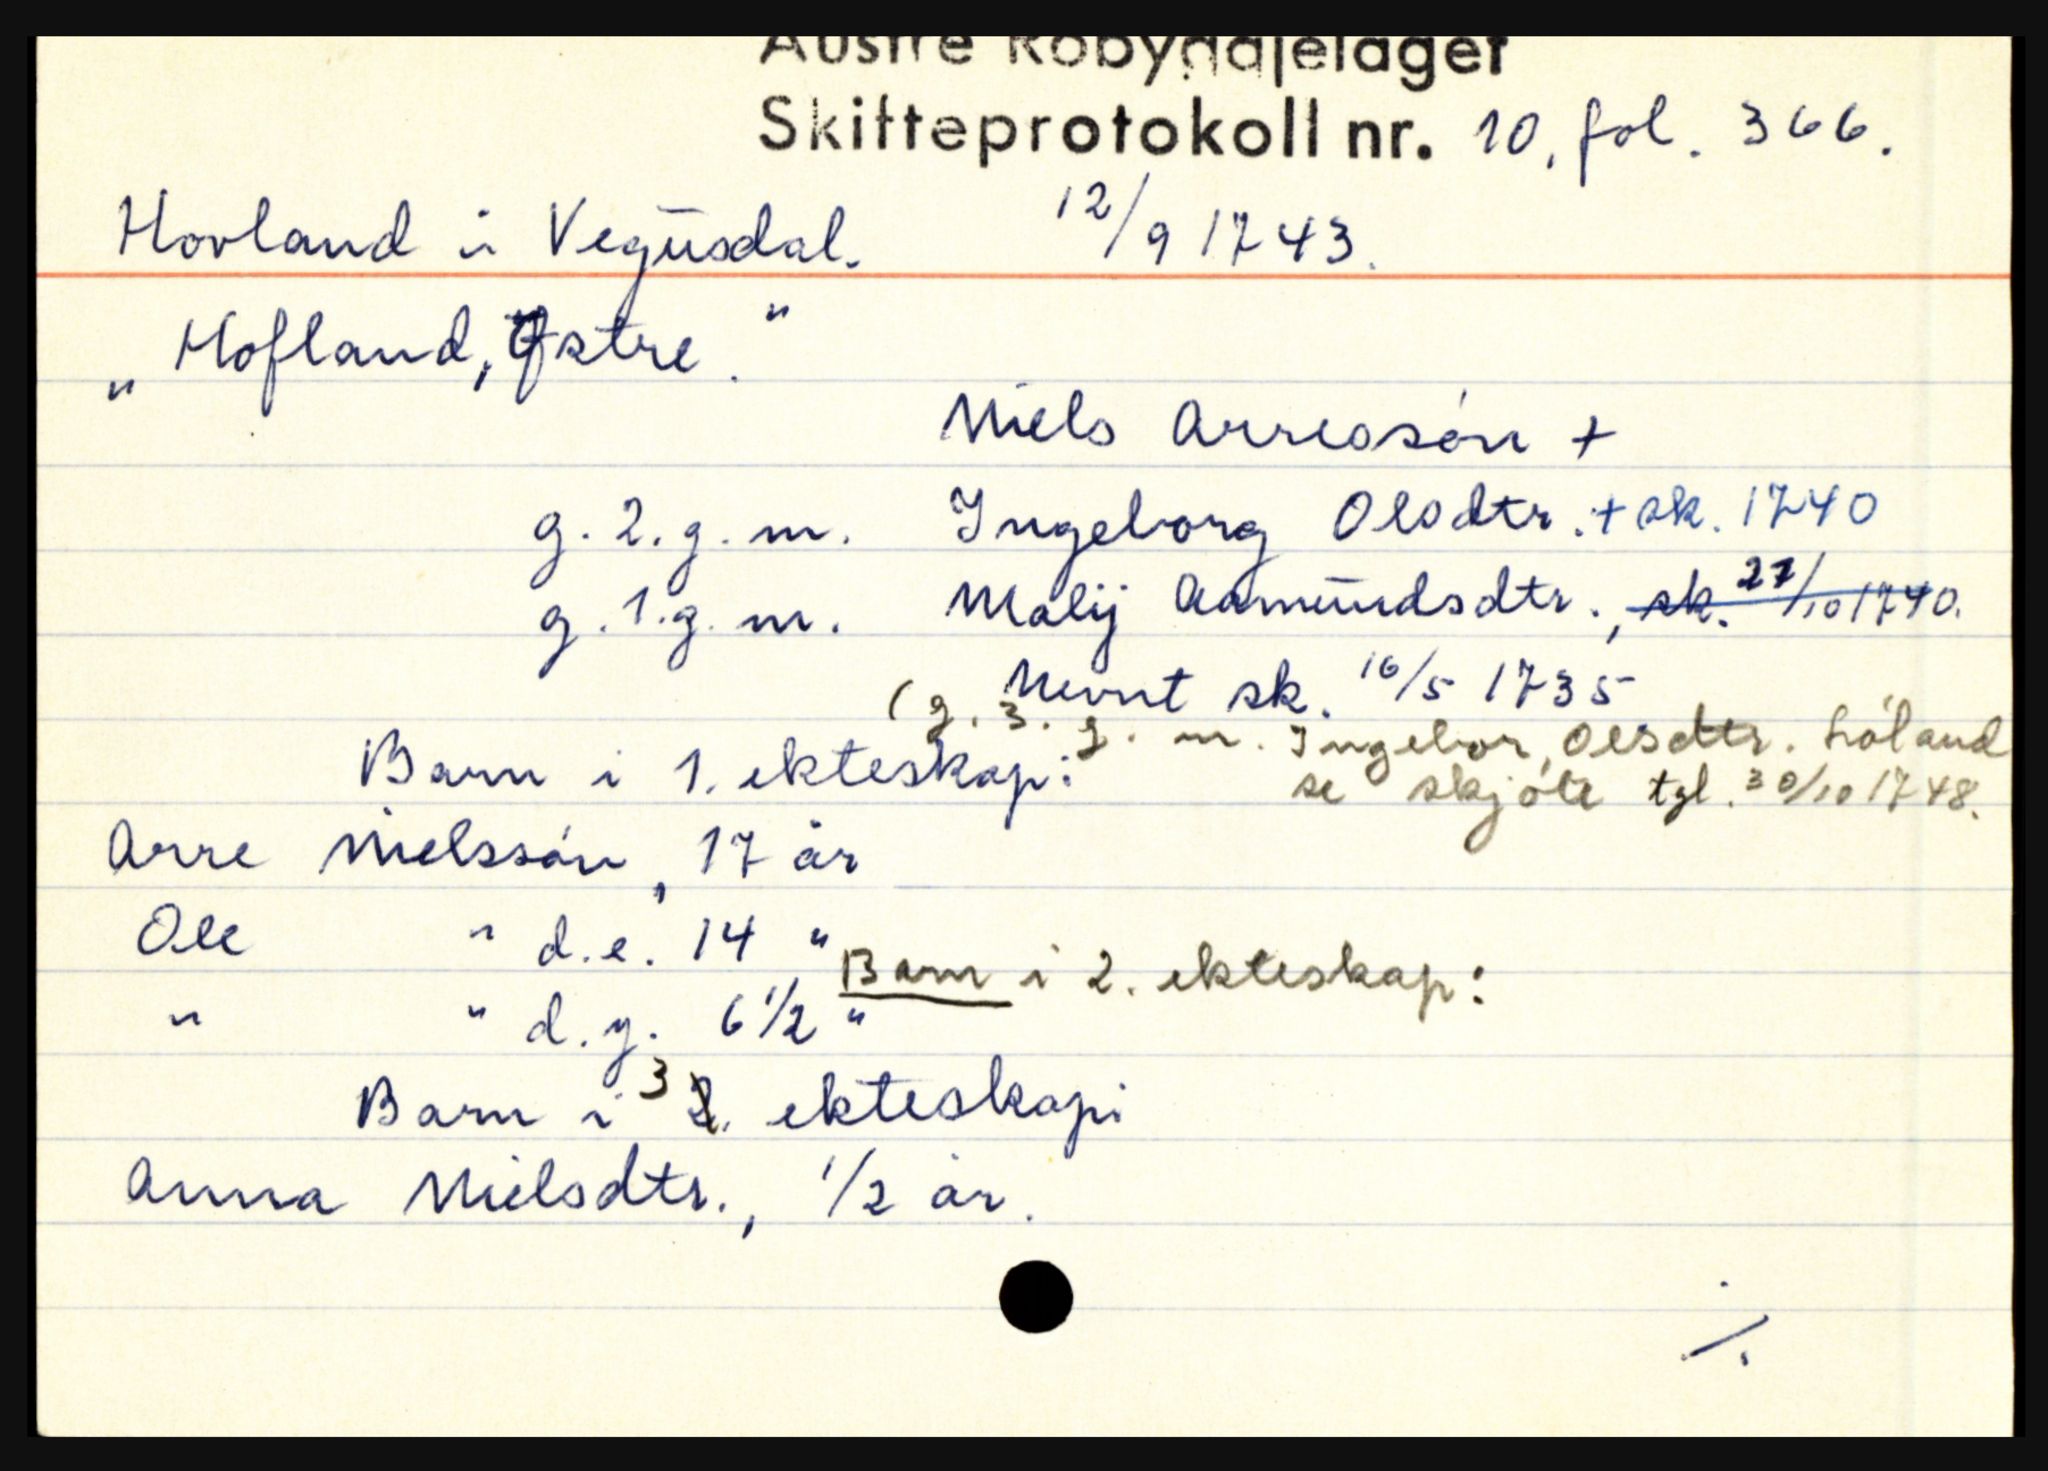 Austre Robyggjelaget
Skifteprotokoll nr. 10, fol. 366.
Hovland i Vegusdal. 12/9 1743.
„Hofland, Østre."
Niels Arresøn +
g. 2. g. m. Ingeborg Olsdtr. + sk. 1740
g. 1. g. m. Malij Aamundsdtr., sk. 27/10 1740.
Nevnt sk. 16/5 1735
(g. 3. g. m. Ingebor, Olsdtr. Lóland
Barn i 1. ekteskap: se skjóte tgl. 30/10 1748.
Arre Nielssøn, 17 år
Ole " d.e. 14 "
Barn i 2. ekteskap:
" " d.y. 6 1/2 "
Barn i 3 2. ekteskap:
Anna Nielsdtr., 1/2 år.
./.